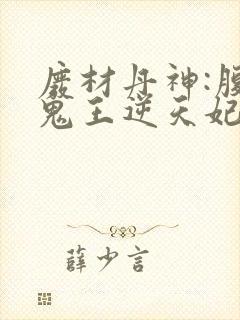 廢材丹神:腹
鬼王逆天妃
薛少言